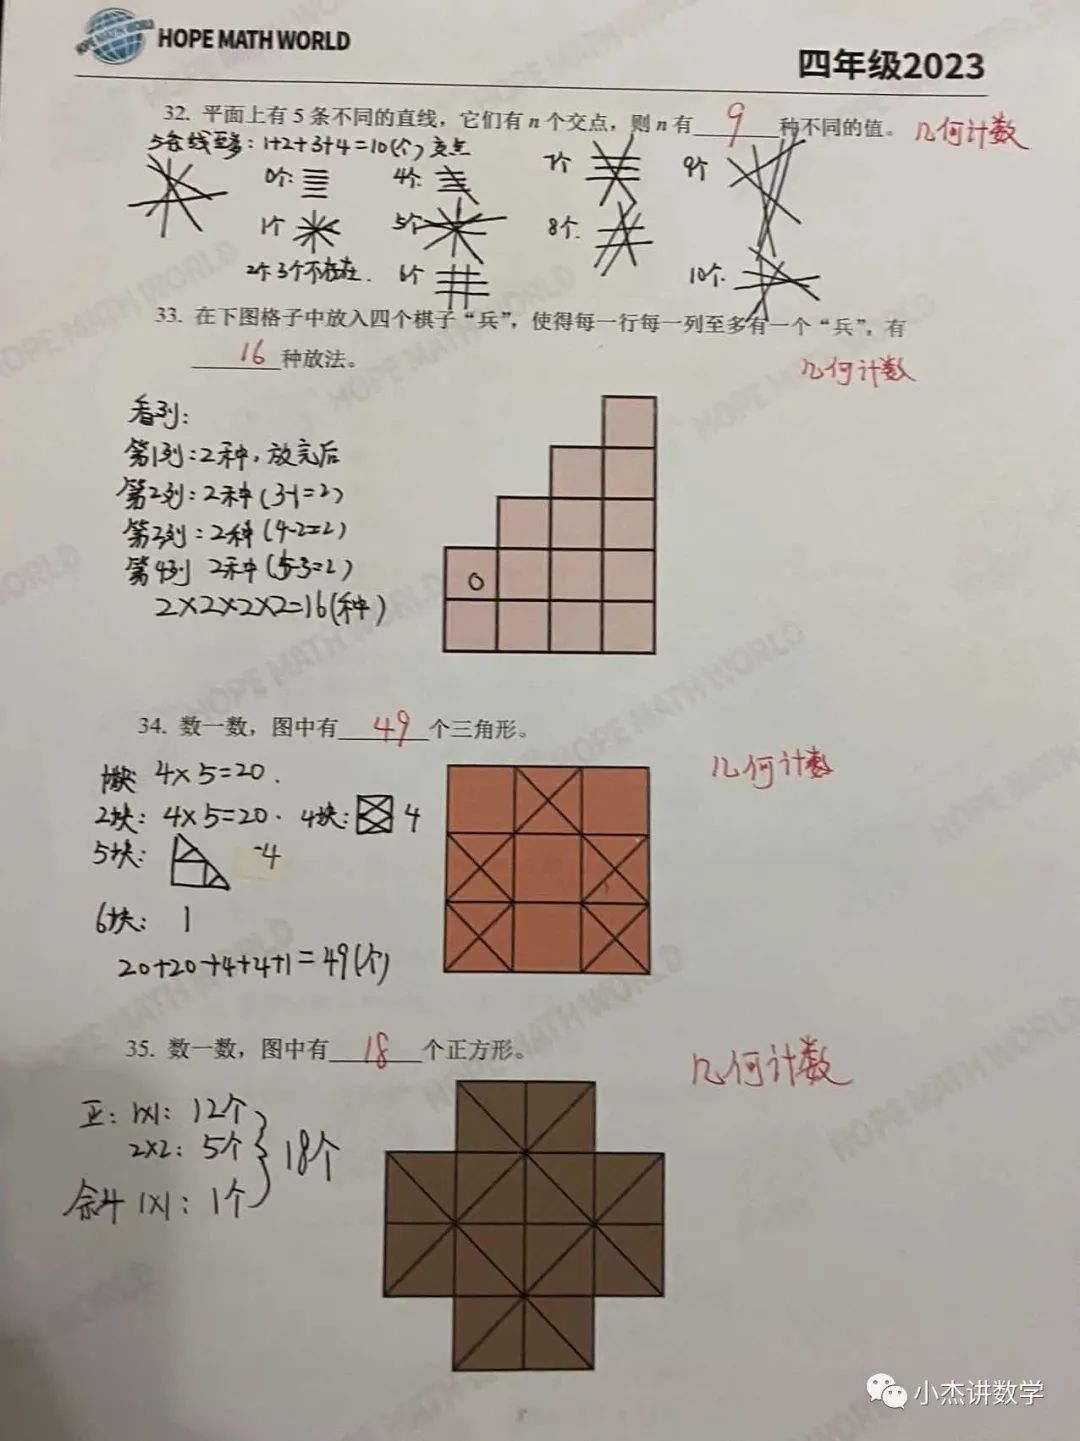 HOPE MATH WORLD
四年级2023
32. 平面上有 5 条不同的直线，它们有 n 个交点，则 n 有 9 种不同的值。 几何计数
5条线至多：1+2+3+4=10(个) 交点
0个: 4个: 7个 9个
1个 5个 8个.
2个 3个不存在. 6个 10个.
33. 在下图格子中放入四个棋子“兵”，使得每一行每一列至多有一个“兵”，有
16 种放法。
几何计数
看列:
第1列:2种, 放完后
第2列:2种(3-1=2)
第3列:2种(4-2=2)
第4列 2种(5-3=2)
2×2×2×2=16(种)
0
34. 数一数，图中有 49 个三角形。
几何计数
1块: 4×5=20.
2块: 4×5=20. 4块: 4
5块: 4
6块: 1
20+20+4+4+1=49(个)
35. 数一数，图中有 18 个正方形。
几何计数
正: 1×1: 12个
2×2: 5个
18个
斜 1×1: 1个
小杰讲数学
HOPE MATH WORLD